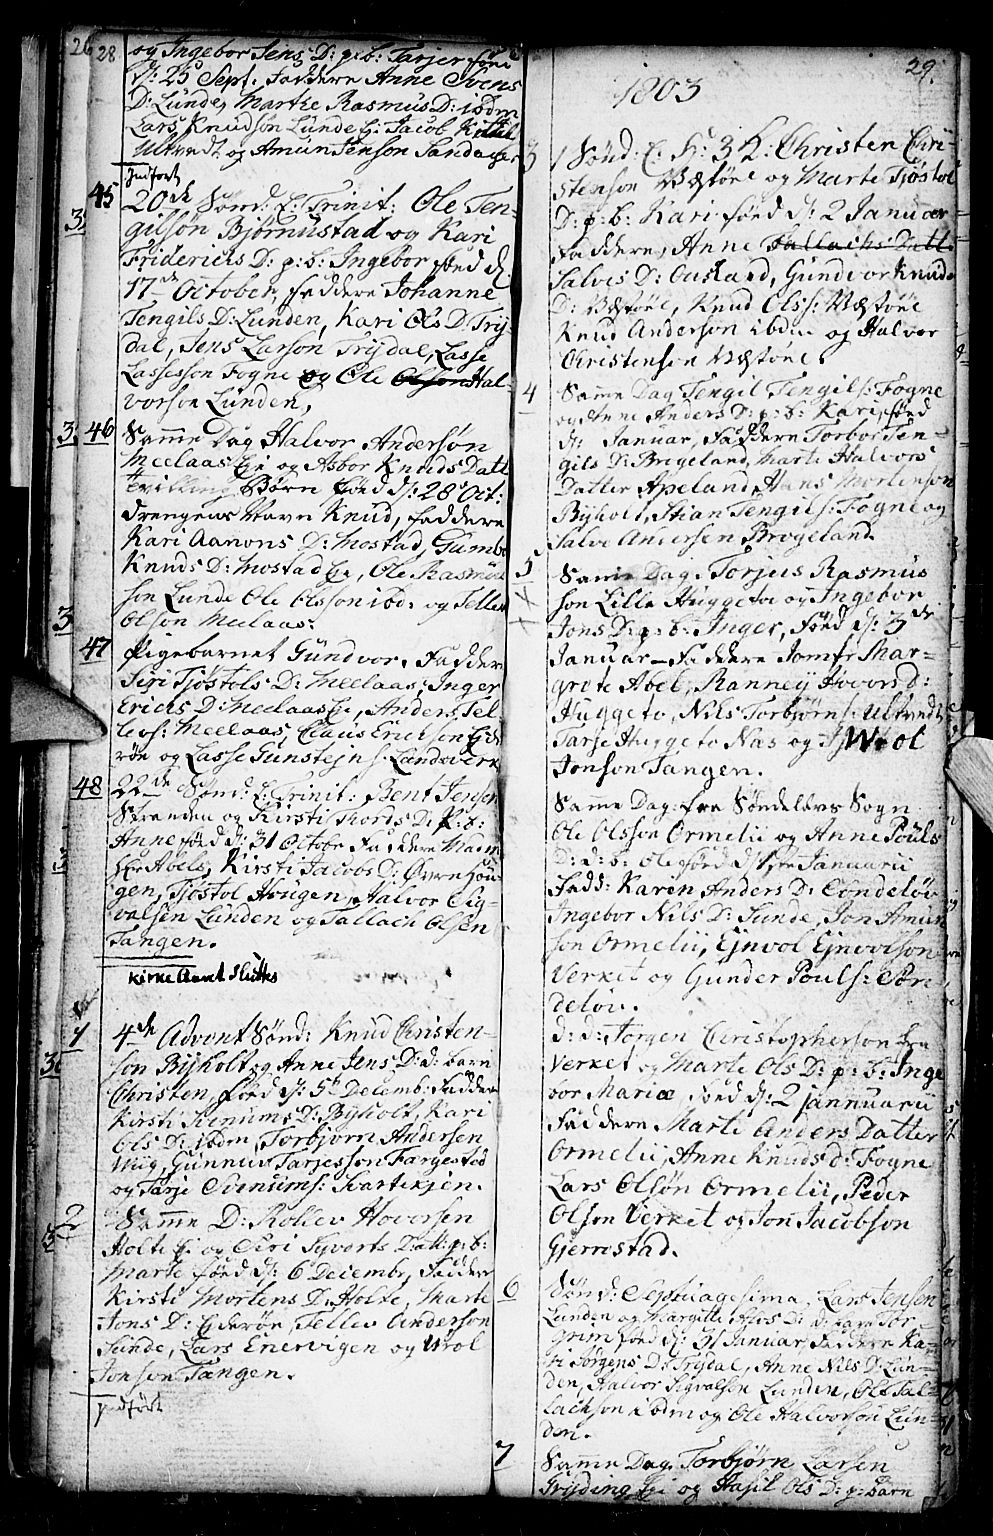 26 28
og Ingebor Jens D: p: b: Tarjer föd
d: 25 Sept: Faddere Anne Svens
D: Lunde, Marthe Rasmus D: ibdm
Lars Knudsøn Lunde Ej: Jacob
Ultvedt og Amun Jenson Sandager
Indført
45
20de Sønd: E: Trinit: Ole Ten-
gilsøn Bjørnustad og Kari
Friderichs D: p: b: Ingebor föed d:
17de October, faddere Johanne
Tengils D: Lunden, Kari Ols D: Trÿ-
dal, Jens Larsøn Trÿdal, Lasse
Lassesson Fogne og Ole Olson Hal-
vorson Lunden,
3 46
Samme Dag Halvor Andersøn
Meelaas Eje og Asbor Knuds Datt
tvilling Børn föed d: 28 Oct:
drengens Navn Knud, faddere
Kari Aanons D: Mostad, Gumbe
Knuds D: Mostad Eje, Ole Rasmus
søn Lunde Ole Olsson ibd: og Tellev
Olson Meelaas:
3
47
Pigebarnet Gündvor. Fadder
Siri Tjöstols D: Meelaas, Inger
Erichs D: Meelaas Eje, Anders Tel
levs: Meelaas, Claus Erichsen Eide
røn og Lasse Gunstejns: Landsverk
48
22de Sønd: E: Trinit: Bent Jensen
Stranden og Kirsti Thords D: P: b:
Anne föed d: 31 Octobr Faddere Mad
Abels, Kirsti Jacobs D: Øvre Hou-
gen, Tjöstol Hougen, Halvor Sig-
valsen Lunden og Tallach Olsen
Tangen.
Kirke Aaret Sluttes
1
4de Advent Sønd: Knud Christen-
søn Bÿholt og Anne Jens D: d: barn
Christen, föed d: 5te Decemb: Faddere
Kirsti Svenums D: Bÿholt, Kari
Ols D: ibdm, Torbjørn Andersen
Mÿg, Gunnuv Tarjesson Fargested
og Tarje Svenums: Svartekjen.
2
Samme D: Rollev Hovorsen
Holte Ej og Siri Syvorts Datt: p: b:
Marte föed d: 6 Decembr, Faddere
Kirsti Mortens D: Holte, Marte
Jons D: Ejderøn, Tellev Anderson
Sunde, Lars Enervigen og Wrol
Jonson Tangen.
Indført
29.
1803
3
1 Sönd: E: H: 3 K: Christen Chri-
stenson Væstöel og Marte Tjöstol
D: p: b: Kari föed d: 2 Januar
faddere, Anne Tallachs Datt:
Salves D: Ouskand, Gundvor Knuds
D: Væstöel, Knud Olss: Væstöel
Knud Anderson ibdm og Halvor
Christensen Væstöel.
4
Samme Dag Tengil Tengils: Fogne
og Anne Anders D: p: b: Kari, föed
d: Januar, Faddern Torbor Ten-
gils D: Brogeland, Marte Halvors
Datter Apeland, Hans Mortenson
Bÿholt, Stian Tengils: Fogne og
Salve Andersen Brogeland.
5
Samme Dag. Torjus Rasmus
søn Lille Huggeto og Ingebor
Jons D: p: b: Inger, föed d: 3de
Januar — Faddere Jomfr Mar-
grete Abel, Ranneÿ Hovors d:
Huggeto, Nils Torbjørns: Ultvedt,
Tarje Huggeto Næs og Wrol
Jonson Tangen.
Samme Dag: fra Søndeløvs Sogn.
Ole Olsson Ormelii og Anne Pouls
D: d: b: Ole föed d: 1ste Januarii
Fadd: Karen Anders D: Søndeløv
Ingebor Nils D: Sunde, Jon Amun
søn Ormelii, Ejnvol Ejnvolsøn
Verket og Gunder Pouls: Søn
deløv.
d: d: Jørgen Christopherson fra
Verket og Marte Ols D: p: b: Inge
bor Maria föed d: 2 jannuarii
Faddere Marte Anders Datter
Ormelii, Anne Knuds d: Fogne
Lars Olsøn Ormelii, Peder
Olson Verket og Jon Jacobson
Gjernstad.
6
Sønd: Septuagesima, Lars Jensen
Lunden og Margitte Sifos D: d: barn Tor-
grim föed d: 31 Januar, Faddere Ka-
ri Jørgens D: Trÿdal, Anne Nils D: Lün-
den, Halvor Sigvalsøn Lunden, Ole Tal-
lachson ibdm og Ole Halvorsøn Lun-
den.
7
Samme Dag. Torbjørn Larsen
Grÿting Eje og Hasil Ols D: p: barn